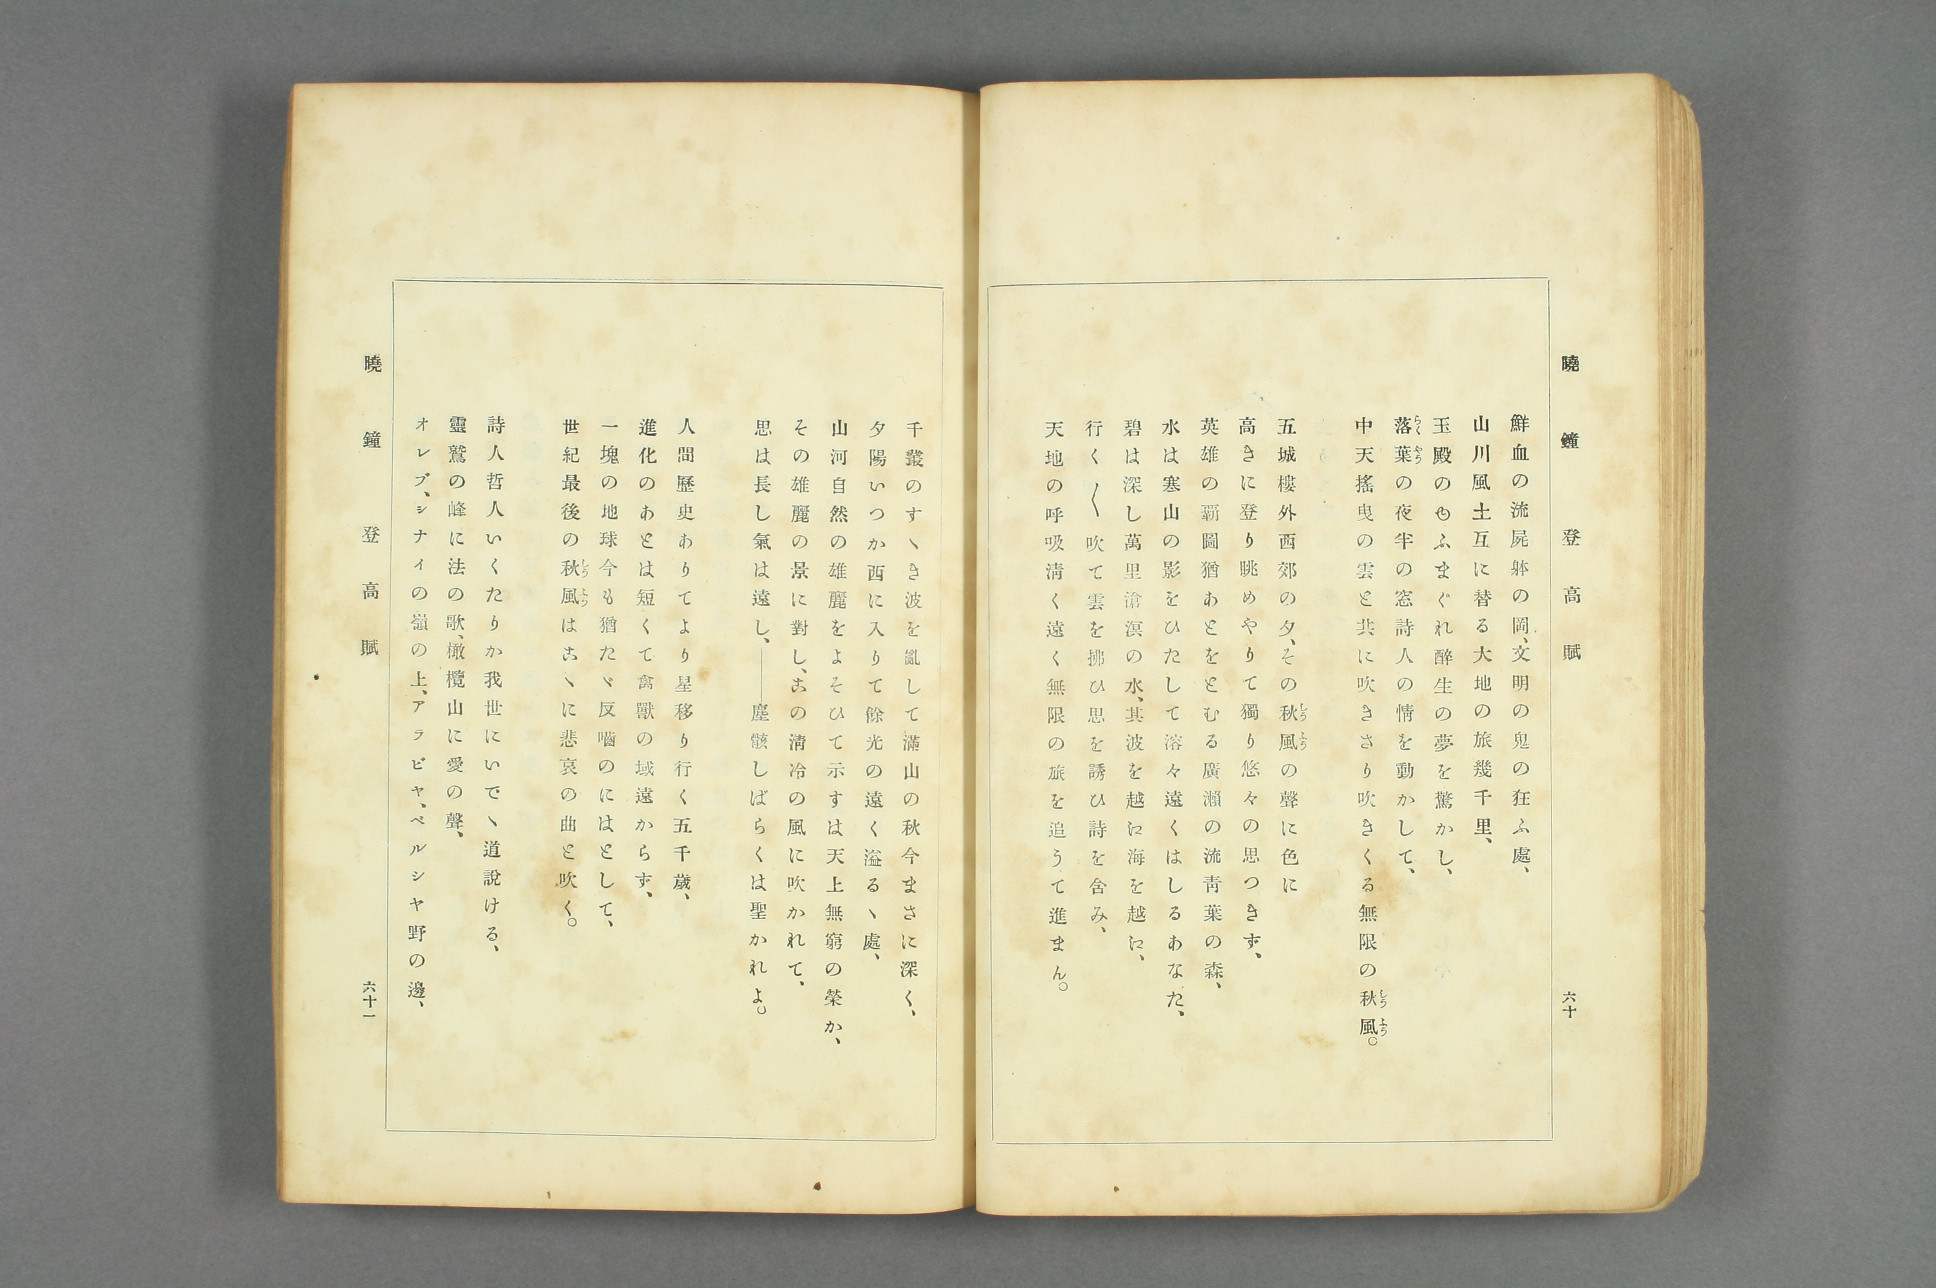 曉鐘 登高賦 六十
鮮血の流屍躰の岡、文明の鬼の狂ふ處、
山川風土互に替る大地の旅幾千里、
玉殿のゆふまぐれ醉生の夢を驚かし、
落葉の夜半の窓詩人の情を動かして、
中天搖曳の雲と共に吹きさり吹きくる無限の秋風。
五城樓外西郊の夕、その秋風の聲に色に
高きに登り眺めやりて獨り悠々の思つきず、
英雄の覇圖猶あとをとむる廣瀨の流靑葉の森、
水は寒山の影をひたして溶々遠くはしるあなた、
碧は深し萬里滄溟の水、其波を越に海を越に、
行く〱吹て雲を拂ひ思を誘ひ詩を含み、
天地の呼吸淸く遠く無限の旅を追うて進まん。
千叢のすヽき波を亂して滿山の秋今まさに深く、
夕陽いつか西に入りて餘光の遠く溢るヽ處、
山河自然の雄麗をよそひて示すは天上無窮の榮か、
その雄麗の景に對し、この淸冷の風に吹かれて、
思は長し氣は遠し、――塵骸しばらくは聖かれよ。
人間歷史ありてより星移り行く五千歲、
進化のあとは短くて禽獸の域遠からず、
一塊の地球今も猶たヾ反嚙のにはとして、
世紀最後の秋風はこヽに悲哀の曲と吹く。
詩人哲人いくたりか我世にいでヽ道說ける、
靈鷲の峰に法の歌、橄欖山に愛の聲、
オレブ、シナイの嶺の上、アラビヤ、ペルシヤ野の邊、
曉鐘 登高賦 六十一